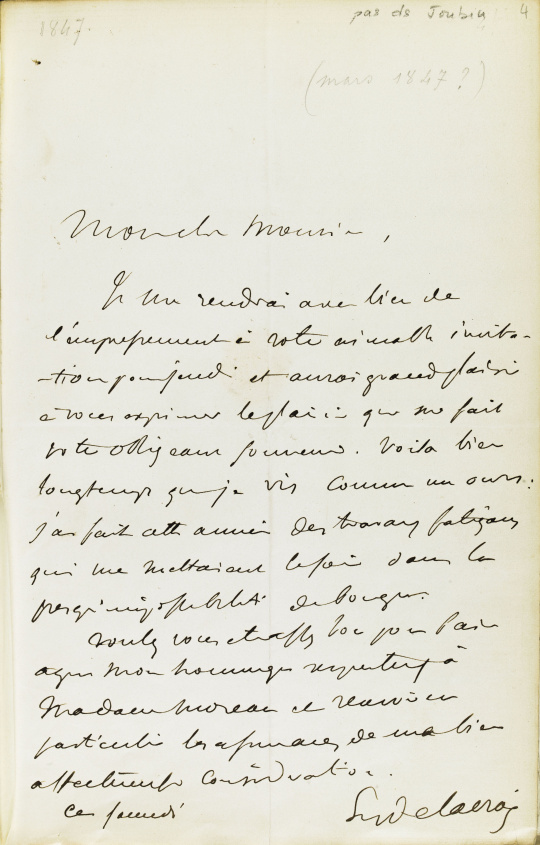 1847.
pas de Joubin 4
(mars 1847 ?)
Mon cher Monsieur,
Je me rendrai avec bien de
l'empressement à votre aimable invita-
-tion pour jeudi et aurai grand plaisir
à vous exprimer le plaisir que me fait
votre obligeant souvenir. Voilà bien
longtemps que je vis comme un ours:
j'ai fait cette année des travaux fatigans
qui me mettaient le soir dans la
presqu'impossibilité de bouger.
Voulez vous être assez bon pour faire
agréer mon hommage respectueux à
Madame Moreau et recevoir en
particulier les assurances de ma bien
affectueuse considération.
Ce samedi
Eug Delacroix